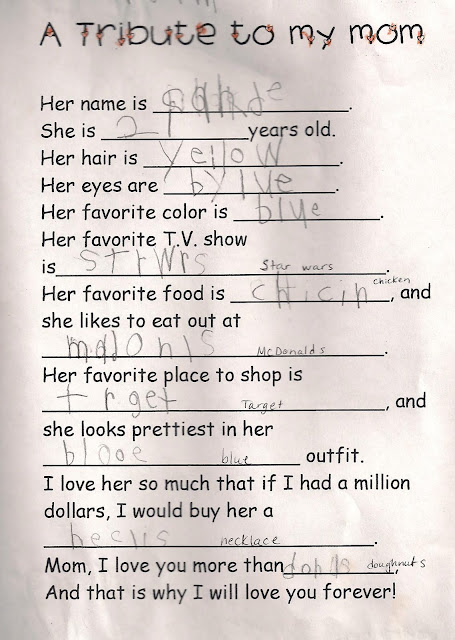 A Tribute to my mom
Her name is
She is 21 years old.
Her hair is yellow.
Her eyes are bylue.
Her favorite color is blye.
Her favorite T.V. show
is strwrs Star wars.
Her favorite food is chicin chicken, and
she likes to eat out at
mdlonls McDonalds.
Her favorite place to shop is
trget Target, and
she looks prettiest in her
blooe blue outfit.
I love her so much that if I had a million
dollars, I would buy her a
neclis necklace.
Mom, I love you more than doughnuts,
And that is why I will love you forever!